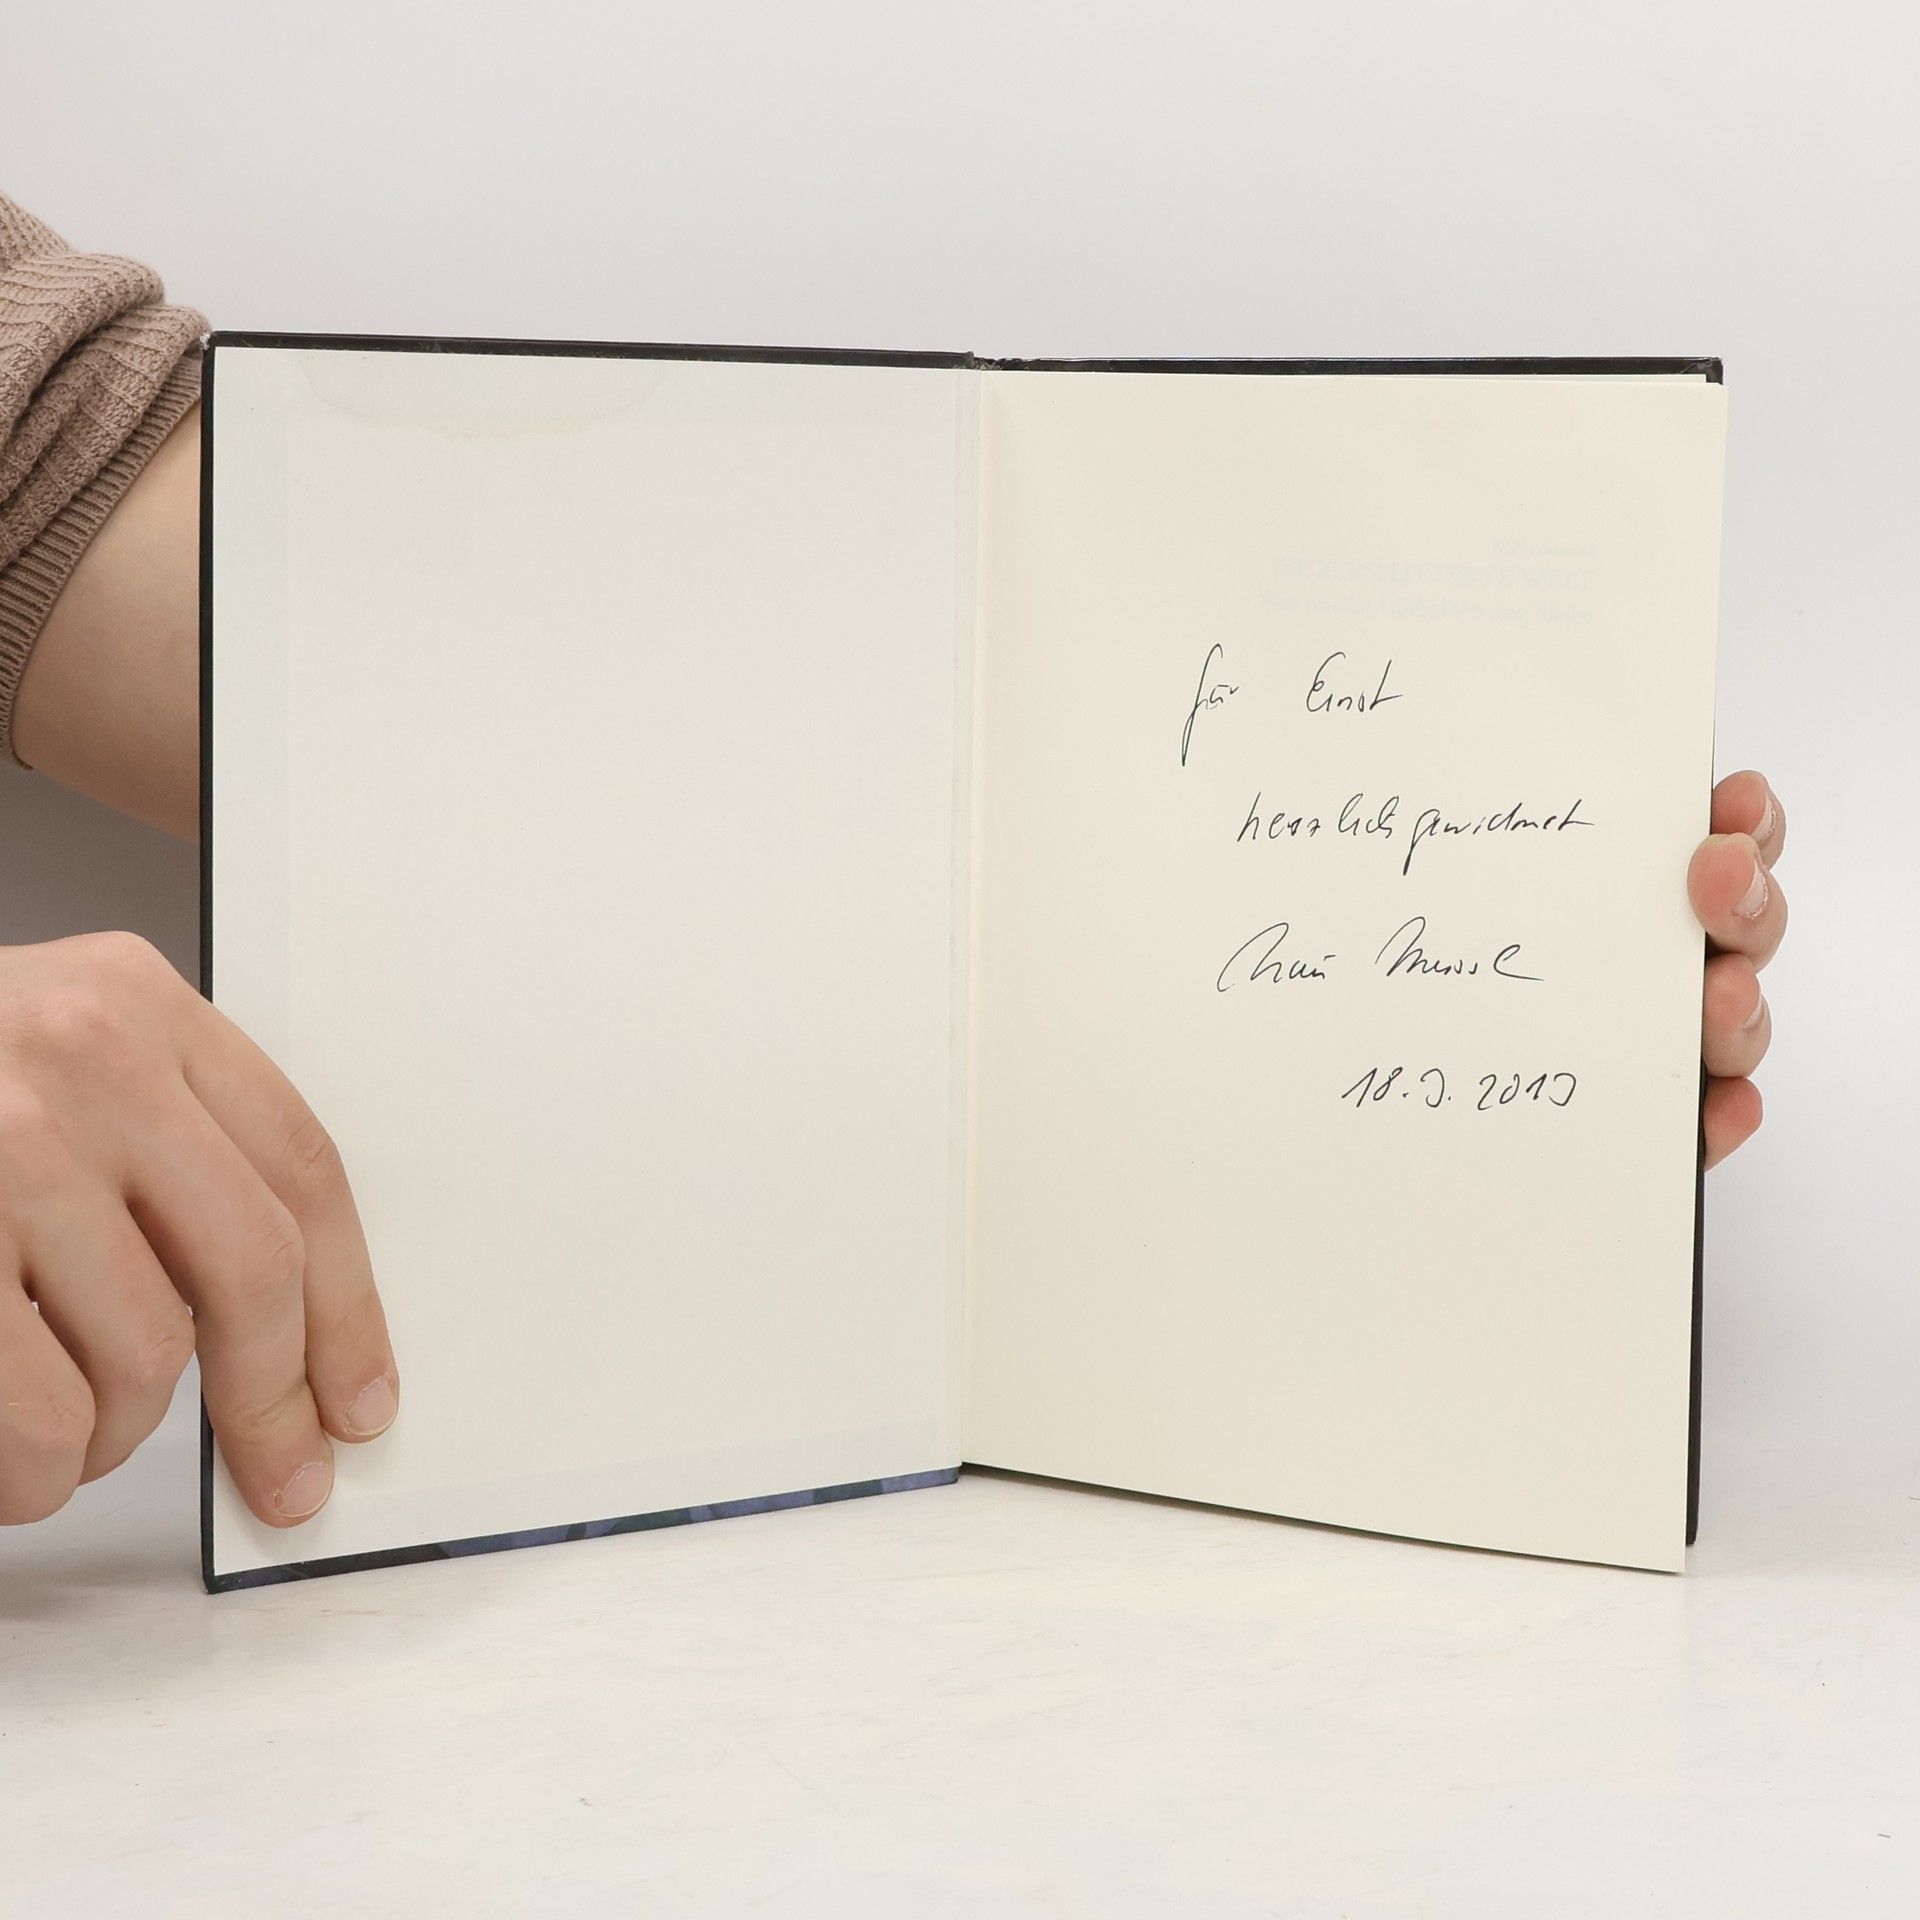 DIE ZERSPLITTERTE WELT
Was von der Globalisierung bleibt
für Ernst
herzlich gewidmet
18.9.2019